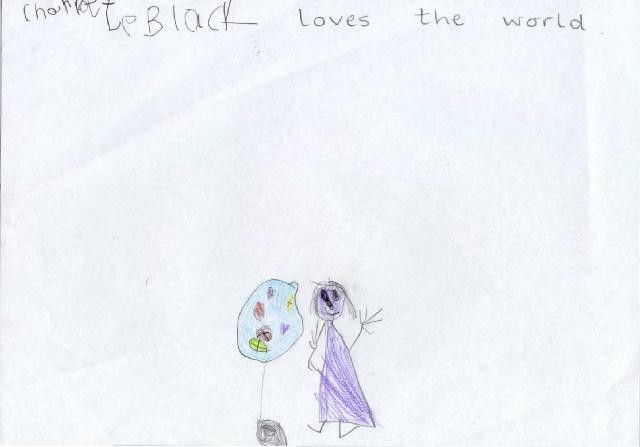 Charlott LeBlack loves the world